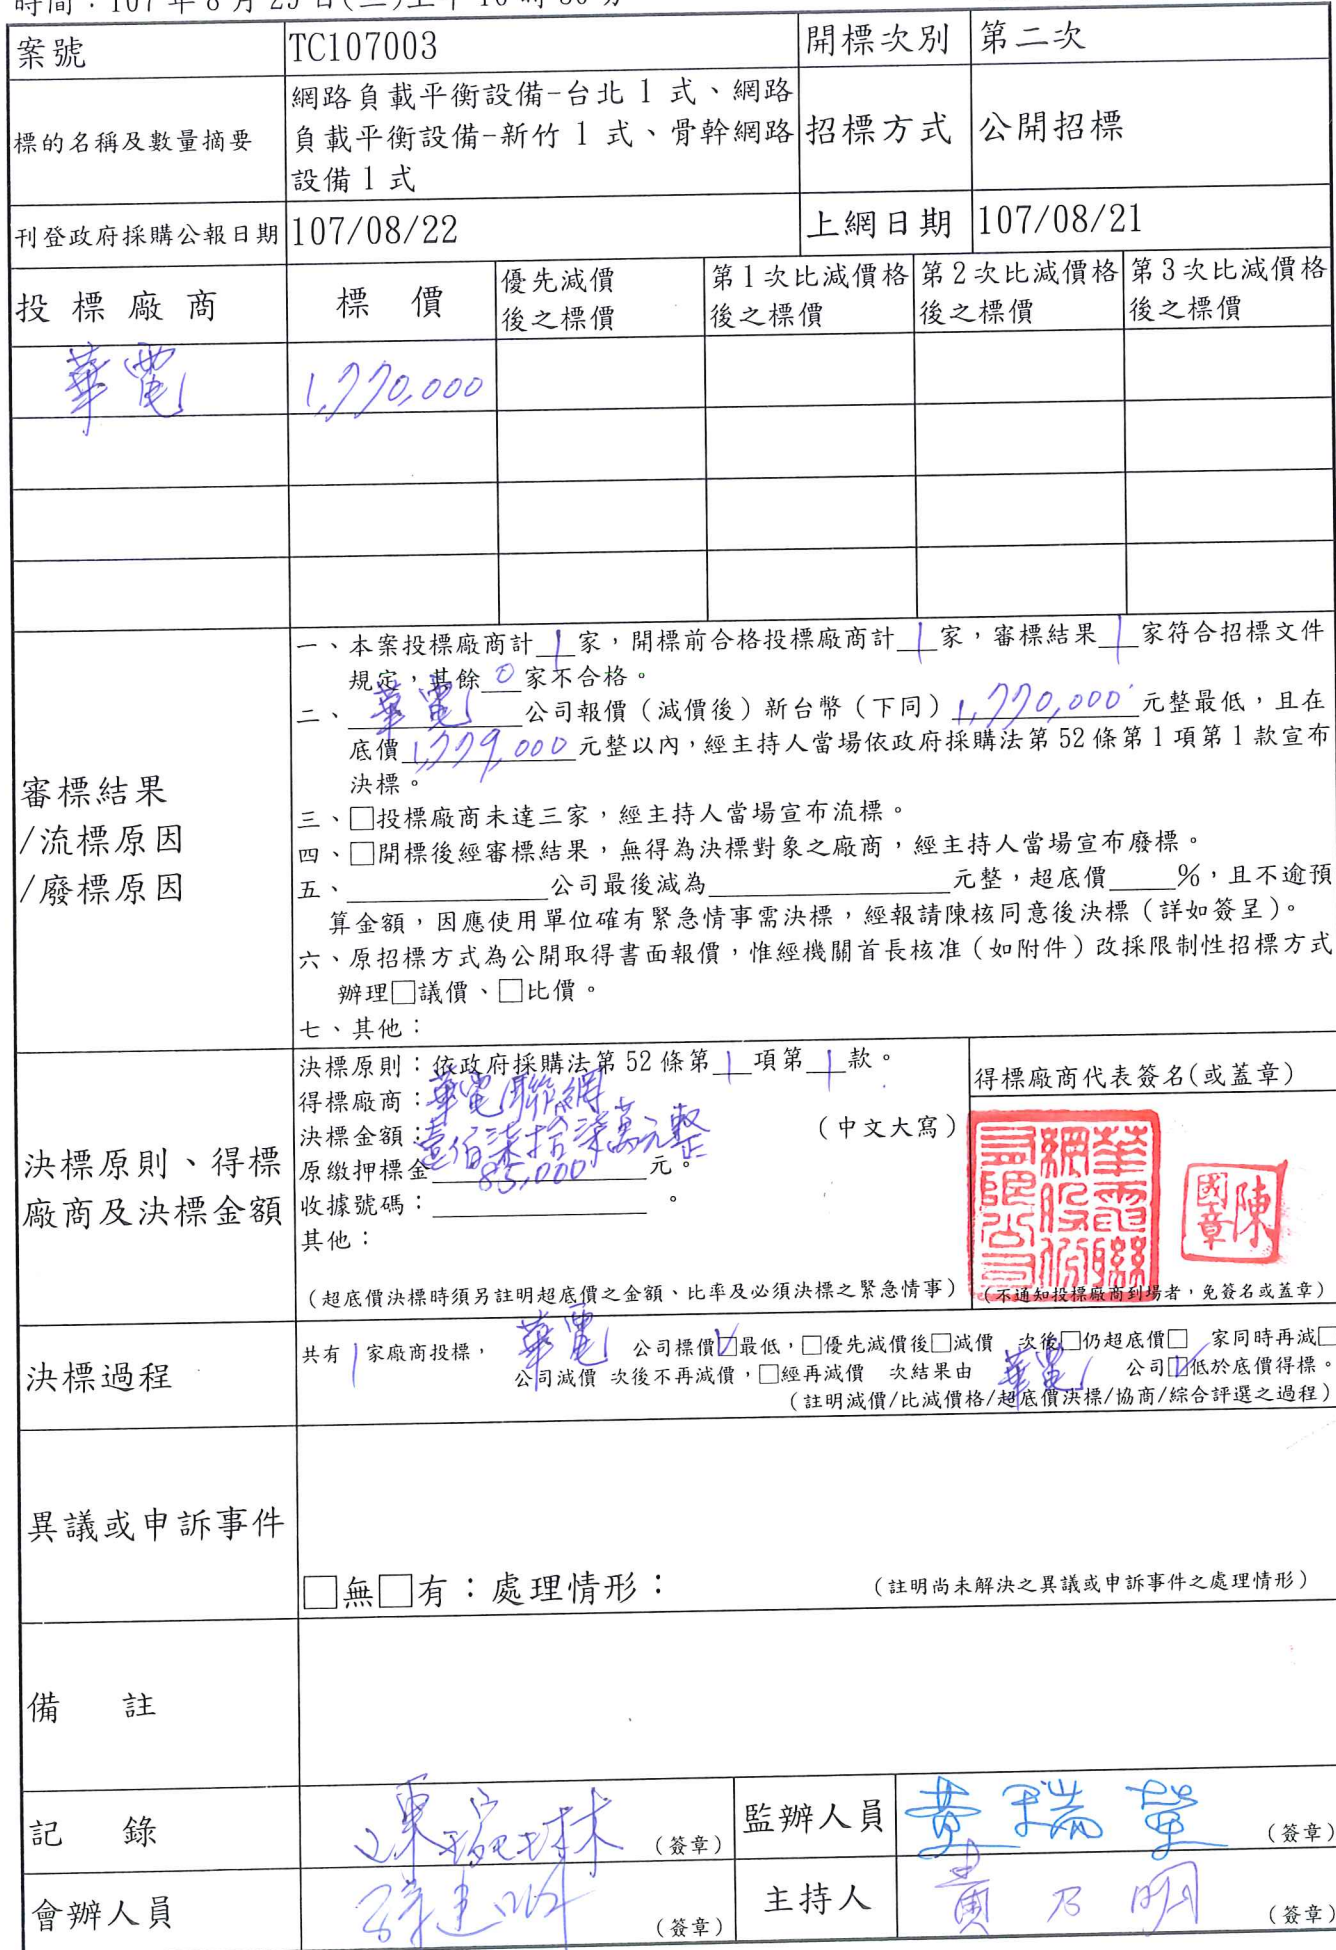 時間：107年8月29日(三)上午10時30分
案號 TC107003 開標次別 第二次
標的名稱及數量摘要 網路負載平衡設備-台北1式、網路
負載平衡設備-新竹1式、骨幹網路
設備1式 招標方式 公開招標
刊登政府採購公報日期 107/08/22 上網日期 107/08/21
投標廠商 標價 優先減價
後之標價 第1次比減價格
後之標價 第2次比減價格
後之標價 第3次比減價格
後之標價
華電 1,770,000
審標結果
/流標原因
/廢標原因
一、本案投標廠商計 1 家，開標前合格投標廠商計 1 家，審標結果 1 家符合招標文件
規定，其餘 0 家不合格。
二、華電公司報價（減價後）新台幣（下同）1,770,000元整最低，且在
底價1,779,000元整以內，經主持人當場依政府採購法第52條第1項第1款宣布
決標。
三、□投標廠商未達三家，經主持人當場宣布流標。
四、□開標後經審標結果，無得為決標對象之廠商，經主持人當場宣布廢標。
五、____公司最後減為____元整，超底價____%，且不逾預
算金額，因應使用單位確有緊急情事需決標，經報請陳核同意後決標（詳如簽呈）。
六、原招標方式為公開取得書面報價，惟經機關首長核准（如附件）改採限制性招標方式
辦理□議價、□比價。
七、其他：
決標原則、得標
廠商及決標金額
決標原則：依政府採購法第52條第 1 項第 1 款。
得標廠商：華電聯網
決標金額：壹佰柒拾柒萬元整（中文大寫）
原繳押標金 85,000 元。
收據號碼：____。
其他：
（超底價決標時須另註明超底價之金額、比率及必須決標之緊急情事）
得標廠商代表簽名(或蓋章)
華電聯
網股份
有限公司
陳
國章
（不通知投標廠商到場者，免簽名或蓋章）
決標過程
共有 1 家廠商投標，華電 公司標價☑最低，□優先減價後□減價 次後□仍超底價□ 家同時再減□
公司減價 次後不再減價，□經再減價 次結果由 華電 公司☑低於底價得標。
（註明減價/比減價格/超底價決標/協商/綜合評選之過程）
異議或申訴事件
□無□有：處理情形： （註明尚未解決之異議或申訴事件之處理情形）
備註
記錄 陳琬琳 （簽章） 監辦人員 黃瑞瑩 （簽章）
會辦人員 （簽章） 主持人 黃乃明 （簽章）